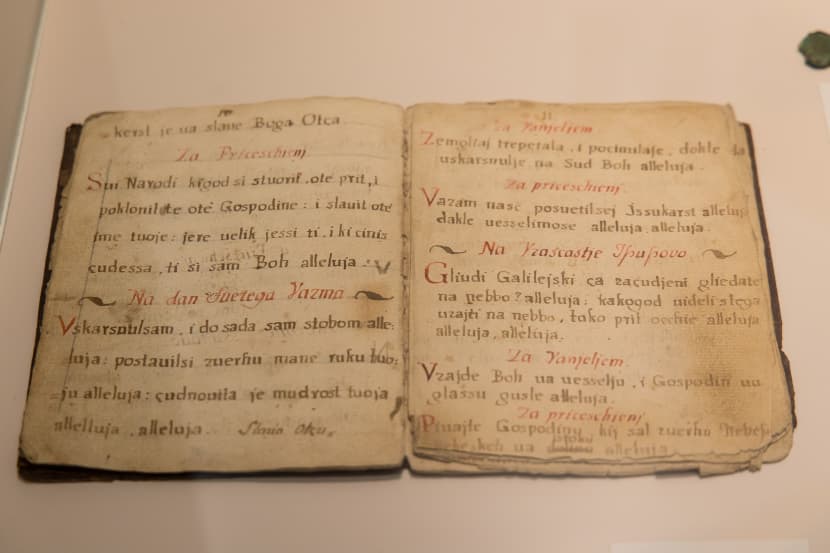 kerst je ua slave Boga Otca
Za Priceschienj
Svi Narodi kigod si stuorif. ote prit, i
poklonit te ote Gospodine: i slauit ote
jme tuoje: jere uelik jessi ti. i ki cinis
cudessa, ti si sam Boh alleluja.
Na dan Suetega Vazma
Vskarsnulsam, i do sada sam stobom alle:
luja: postauilsi zuerhu mane ruku tuo:
ju alleluja: cudnouita je mudrost tuoja
allelluja, alleluja.
11
Za Vanjeljem
Zemgltaj trepetala, i pocinulaje, dokle
uskarsnulje na Sud Boh alleluja.
Za priceschienj
Vazam nasc posuetilsej Jssukarst
dakle uesselimose alleluja, alleluja.
Na Vzascastje Spasovo
Gliudi Galilejski ca zacudjeni gliedate
na nebbo? alleluja: kakogod uideli stega
uzajti na nebbo, tako prit occhie alleluja
alleluja, alleluja.
Za Vanjeljem
Vzajde Boh ua uesselju, i Gospodin uu
glassu gusle alleluja.
Za priceschienj
Pinajte Gospodinu, kij sal zuerhu
keh ua alleluja